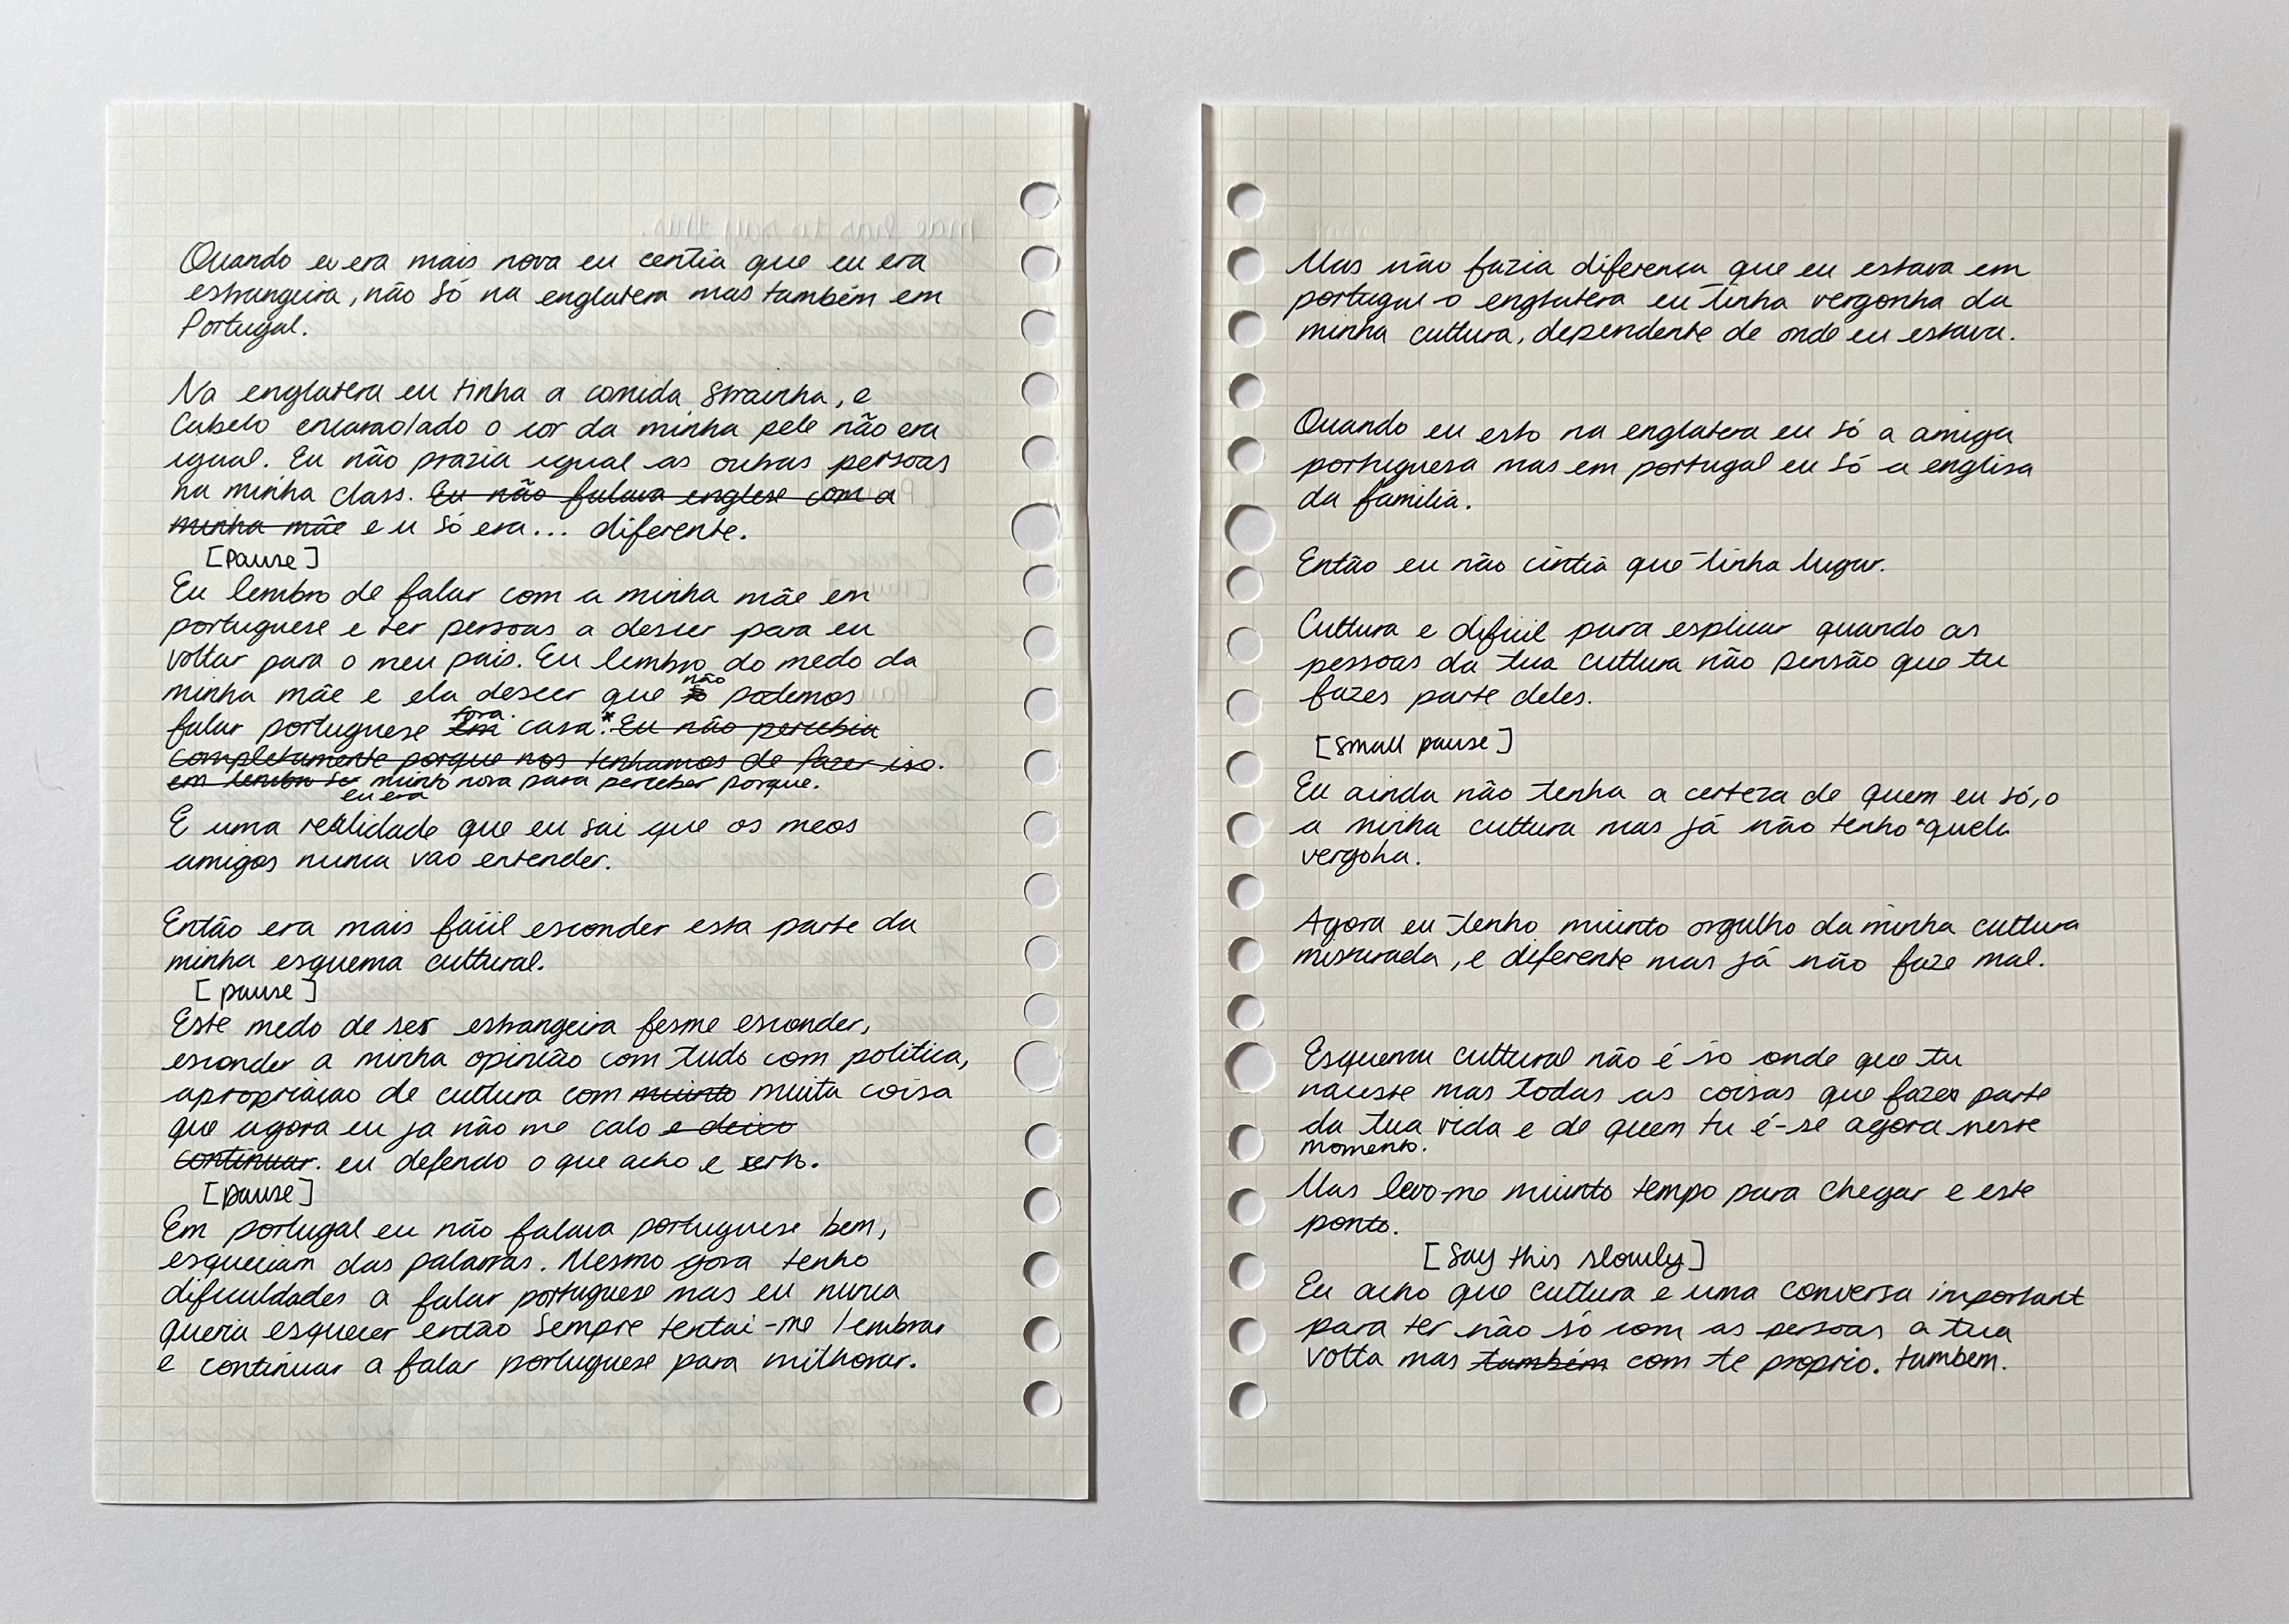 Quando eu era mais nova eu centia que eu era
estrangeira, não só na englatera mas também em
Portugal.
Na englatera eu tinha a comida strainha, e
cabelo encaraolado o cor da minha pele não era
igual. Eu não prazia igual as outras persoas
na minha class. Eu não falava englese com a
minha mãe e eu só era... diferente.
[Pause]
Eu lembro de falar com a minha mãe em
portuguese e ter persoas a descer para eu
voltar para o meu pais. Eu lembro do medo da
não
minha mãe e ela descer que só podemos
fora
falar portuguese em casa.* Eu não percebia
completamente porque nos tenhamos de fazer iso.
em lembro ser muinto nova para perceber porque.
eu era
E uma realidade que eu sai que os meos
amigos nunca vao entender.
Então era mais fácil esconder esta parte da
minha esquema cultural.
[pause]
Este medo de ser estrangeira fesme esconder,
esconder a minha opinião com tudo com politica,
apropriaçao de cultura com muinto muita coisa
que agora eu ja não me calo e deixo
continuar. eu defendo o que acho e serto.
[pause]
Em portugal eu não falava portuguese bem,
esqueciam das palavras. Mesmo gora tenho
dificuldades a falar portuguese mas eu nunca
queria esquecer então sempre tentai-me lembrar
e continuar a falar portuguese para milhorar.
Mas não fazia diferença que eu estava em
portugal o englatera eu tinha vergonha da
minha cultura, dependente de onde eu estava.
Quando eu esto na englatera eu só a amiga
portuguesa mas em portugal eu só a englisa
da familia.
Então eu não cintia que tinha lugar.
Cultura e dificil para esplicar quando as
pessoas da tua cultura não pensão que tu
fazes parte deles.
[small pause]
Eu ainda não tenha a certeza de quem eu só, o
a minha cultura mas já não tenho aquela
vergoha.
Agora eu tenho muinto orgulho da minha cultura
misturada, e diferente mas já não faze mal.
Esquema cultural não é so onde que tu
nauste mas todas as coisas que fazes parte
da tua vida e de quem tu é-se agora neste
momento.
Mas levo-me muinto tempo para chegar e este
ponto.
[Say this slowly]
Eu acho que cultura e uma conversa important
para ter não só com as persoas a tua
volta mas também com te proprio. tambem.